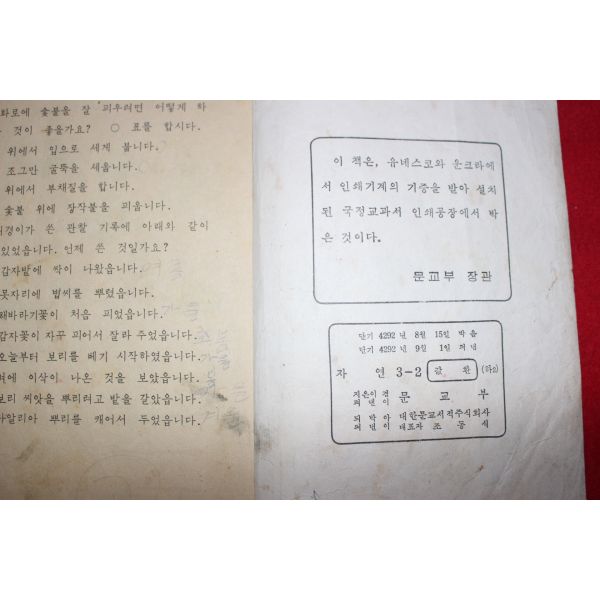 화로에 숯불을 잘 피우려면 어떻게 하
것이 좋을가요? ○ 표를 합시다.
위에서 입으로 세게 붑니다.
조그만 굴뚝을 세웁니다.
위에서 부채질을 합니다.
숯불 위에 장작불을 피웁니다.
경이가 쓴 관찰 기록에 아래와 같이
있었읍니다. 언제 쓴 것일가요?
감자밭에 싹이 나왔읍니다.
못자리에 볍씨를 뿌렸읍니다.
해바라기꽃이 처음 피었읍니다.
감자꽃이 자꾸 피어서 잘라 주었읍니다.
오늘부터 보리를 베기 시작하였읍니다.
벼에 이삭이 나온 것을 보았읍니다.
보리 씨앗을 뿌리려고 밭을 갈았읍니다.
다알리아 뿌리를 캐어서 두었읍니다.
여름
가을
이 책은, 유네스코와 운크라에
서 인쇄기계의 기증을 받아 설치
된 국정교과서 인쇄공장에서 박
은 것이다.
문교부 장관
단기 4292 년 8월 15일 박음
단기 4292 년 9월 1일 펴냄
자 연 3-2 값 환 (하2)
지은이 겸
펴낸이 문 교 부
박아 대한문교서적주식회사
펴낸이 대표자 조 동 식